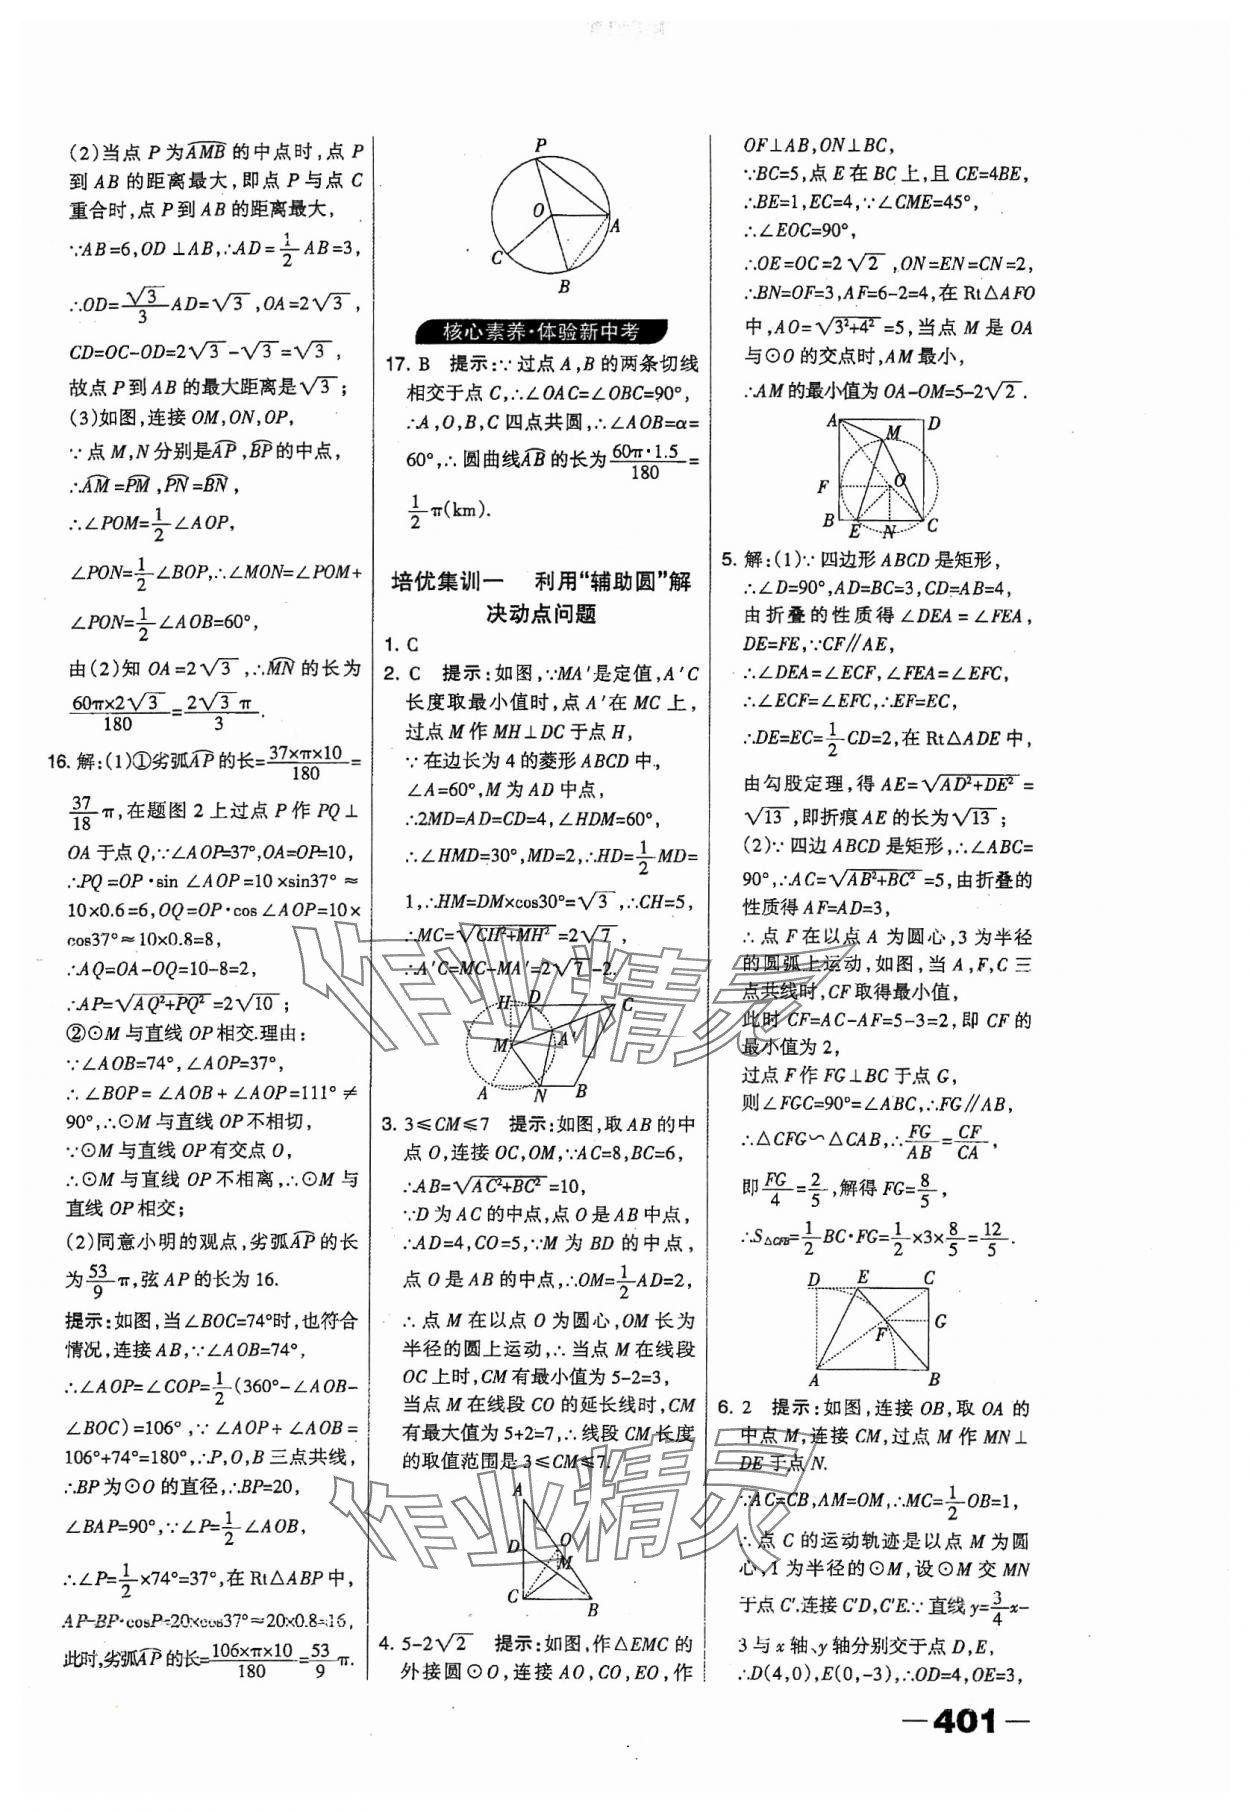 (2)当点 P 为⌒AMB 的中点时,点 P
到 AB 的距离最大,即点 P 与点 C
重合时,点 P 到 AB 的距离最大,
∵AB=6,OD⊥AB,∴AD=1/2 AB=3,
∴OD=√3/3 AD=√3,OA=2√3,
CD=OC-OD=2√3-√3=√3,
故点 P 到 AB 的最大距离是√3;
(3)如图,连接 OM,ON,OP,
∵点 M,N 分别是⌒AP,⌒BP的中点,
∴⌒AM=⌒PM,⌒PN=⌒BN,
∴∠POM=1/2∠AOP,
∠PON=1/2∠BOP,∴∠MON=∠POM+
∠PON=1/2∠AOB=60°,
由(2)知 OA=2√3,∴⌒MN的长为
60π×2√3/180=2√3π/3.
16. 解:(1)①劣弧⌒AP的长=37×π×10/180=
37/18π,在题图 2 上过点 P 作 PQ⊥
OA 于点 Q,∵∠AOP=37°,OA=OP=10,
∴PQ=OP·sin∠AOP=10×sin37°≈
10×0.6=6,OQ=OP·cos∠AOP=10×
cos37°≈10×0.8=8,
∴AQ=OA-OQ=10-8=2,
∴AP=√(AQ²+PQ²)=2√10;
②⊙M 与直线 OP 相交.理由:
∵∠AOB=74°,∠AOP=37°,
∴∠BOP=∠AOB+∠AOP=111°≠
90°,∴⊙M 与直线 OP 不相切,
∵⊙M 与直线 OP 有交点 O,
∴⊙M 与直线 OP 不相离,∴⊙M 与
直线 OP 相交;
(2)同意小明的观点,劣弧⌒AP的长
为53/9π,弦 AP 的长为 16.
提示:如图,当∠BOC=74°时,也符合
情况,连接 AB,∵∠AOB=74°,
∴∠AOP=∠COP=1/2(360°-∠AOB-
∠BOC)=106°,∵∠AOP+∠AOB=
106°+74°=180°,∴P,O,B 三点共线,
∴BP 为⊙O 的直径,∴BP=20,
∠BAP=90°,∵∠P=1/2∠AOB,
∴∠P=1/2×74°=37°,在 Rt△ABP 中,
AP=BP·cosP=20×cos37°≈20×0.8=16,
此时,劣弧⌒AP的长=106×π×10/180=53/9π.
P
O
A
C
B
核心素养·体验新中考
17. B 提示:∵过点 A,B 的两条切线
相交于点 C,∴∠OAC=∠OBC=90°,
∴A,O,B,C 四点共圆,∴∠AOB=α=
60°,∴圆曲线⌒AB的长为60π·1.5/180=
1/2π(km).
培优集训一 利用“辅助圆”解
决动点问题
1. C
2. C 提示:如图,∵MA′是定值,A′C
长度取最小值时,点 A′在 MC 上,
过点 M 作 MH⊥DC 于点 H,
∵在边长为 4 的菱形 ABCD 中,
∠A=60°,M 为 AD 中点,
∴2MD=AD=CD=4,∠HDM=60°,
∴∠HMD=30°,MD=2,∴HD=1/2MD=
1,∴HM=DM×cos30°=√3,∴CH=5,
∴MC=√(CH²+MH²)=2√7,
∴A′C=MC-MA′=2√7-2.
H D C
M A′
A N B
3. 3≤CM≤7 提示:如图,取 AB 的中
点 O,连接 OC,OM,∵AC=8,BC=6,
∴AB=√(AC²+BC²)=10,
∵D 为 AC 的中点,点 O 是 AB 中点,
∴AD=4,CO=5,∵M 为 BD 的中点,
点 O 是 AB 的中点,∴OM=1/2AD=2,
∴点 M 在以点 O 为圆心,OM 长为
半径的圆上运动,∴当点 M 在线段
OC 上时,CM 有最小值为 5-2=3,
当点 M 在线段 CO 的延长线时,CM
有最大值为 5+2=7,∴线段 CM 长度
的取值范围是 3≤CM≤7.
A
D O
M
C B
4. 5-2√2 提示:如图,作△EMC 的
外接圆⊙O,连接 AO,CO,EO,作
OF⊥AB,ON⊥BC,
∵BC=5,点 E 在 BC 上,且 CE=4BE,
∴BE=1,EC=4,∵∠CME=45°,
∴∠EOC=90°,
∴OE=OC=2√2,ON=EN=CN=2,
∴BN=OF=3,AF=6-2=4,在 Rt△AFO
中,AO=√(3²+4²)=5,当点 M 是 OA
与⊙O 的交点时,AM 最小,
∴AM 的最小值为 OA-OM=5-2√2.
A D
M
F O
B E N C
5. 解:(1)∵四边形 ABCD 是矩形,
∴∠D=90°,AD=BC=3,CD=AB=4,
由折叠的性质得∠DEA=∠FEA,
DE=FE,∵CF∥AE,
∴∠DEA=∠ECF,∠FEA=∠EFC,
∴∠ECF=∠EFC,∴EF=EC,
∴DE=EC=1/2CD=2,在 Rt△ADE 中,
由勾股定理,得 AE=√(AD²+DE²)=
√13,即折痕 AE 的长为√13;
(2)∵四边 ABCD 是矩形,∴∠ABC=
90°,∴AC=√(AB²+BC²)=5,由折叠的
性质得 AF=AD=3,
∴点 F 在以点 A 为圆心,3 为半径
的圆弧上运动,如图,当 A,F,C 三
点共线时,CF 取得最小值,
此时 CF=AC-AF=5-3=2,即 CF 的
最小值为 2,
过点 F 作 FG⊥BC 于点 G,
则∠FGC=90°=∠ABC,∴FG∥AB,
∴△CFG∽△CAB,∴FG/AB=CF/CA,
即FG/4=2/5,解得 FG=8/5,
∴S△CFB=1/2BC·FG=1/2×3×8/5=12/5.
D E C
F G
A B
6. 2 提示:如图,连接 OB,取 OA 的
中点 M,连接 CM,过点 M 作 MN⊥
DE 于点 N.
∵AC=CB,AM=OM,∴MC=1/2OB=1,
∴点 C 的运动轨迹是以点 M 为圆
心,1 为半径的⊙M,设⊙M 交 MN
于点 C′.连接 C′D,C′E∵直线 y=3/4x-
3 与 x 轴、y 轴分别交于点 D,E,
∴D(4,0),E(0,-3),∴OD=4,OE=3,
—401—
作业精灵
作业精灵